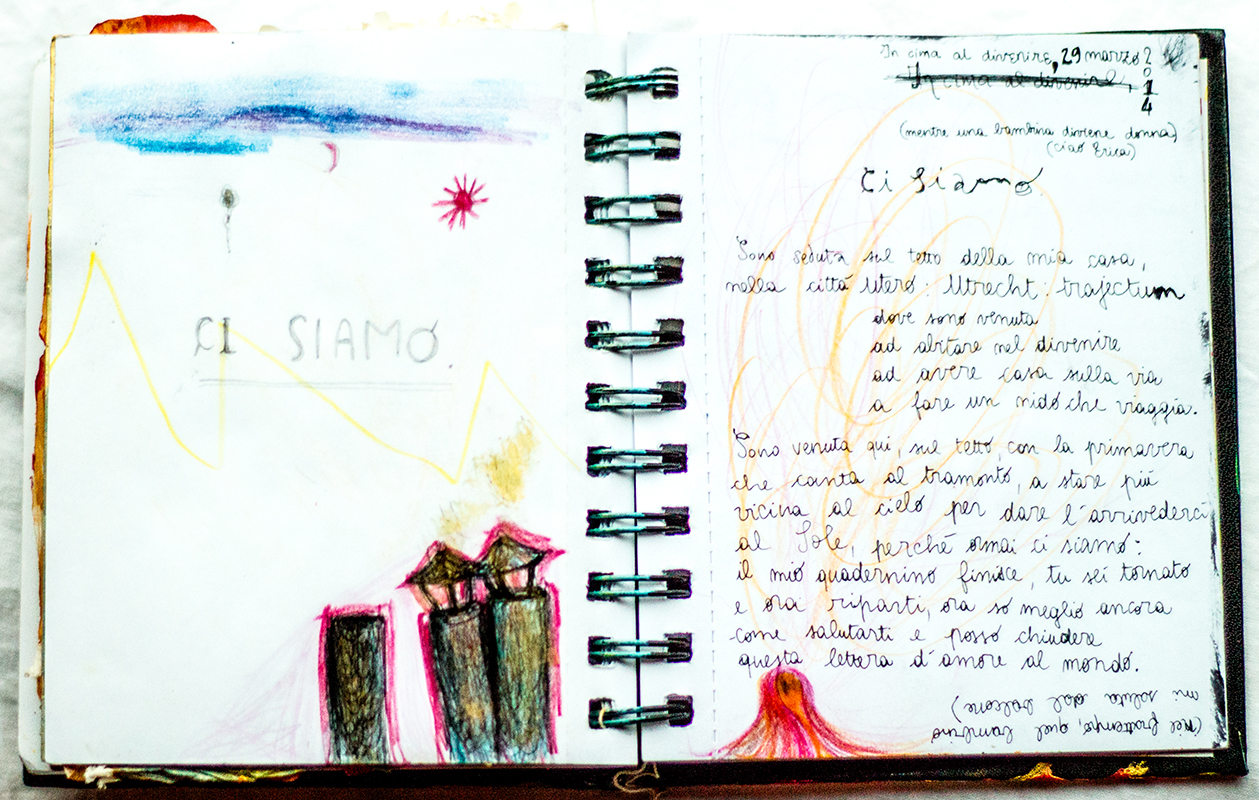 CI SIAMO
In cima al divenire, 29 marzo 2014
In cima al divenire,
(mentre una bambina diviene donna)
(ciao Erica)
Ci Siamo.
Sono seduta sul tetto della mia casa,
nella città utero: Utrecht: trajectum
dove sono venuta
ad abitare nel divenire
ad avere casa sulla via
a fare un nido che viaggia.
Sono venuta qui, sul tetto, con la primavera
che canta al tramonto, a stare più
vicina al cielo per dare l'arrivederci
al Sole, perché ormai ci siamo:
il mio quadernino finisce, tu sei tornato
e ora riparti, ora so meglio ancora
come salutarti e posso chiudere
questa lettera d'amore al mondo.
(nel frattempo, quel bambino
mi saluta dal balcone)